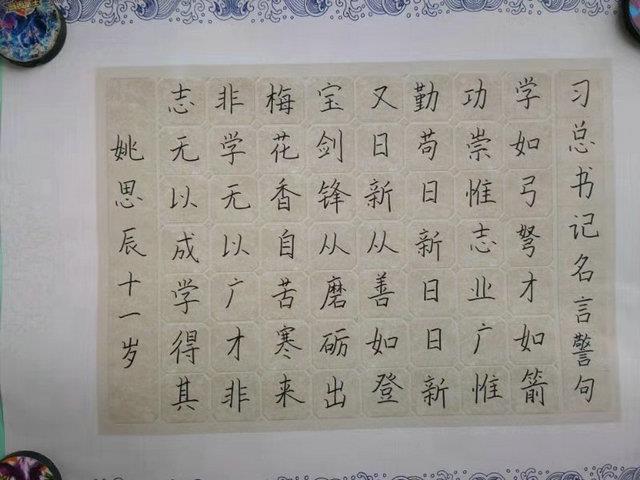 习总书记名言警句
学如弓弩才如箭
功崇惟志业广惟
勤苟日新日日新
又日新从善如登
宝剑锋从磨砺出
梅花香自苦寒来
非学无以广才非
志无以成学得其
姚思辰十一岁